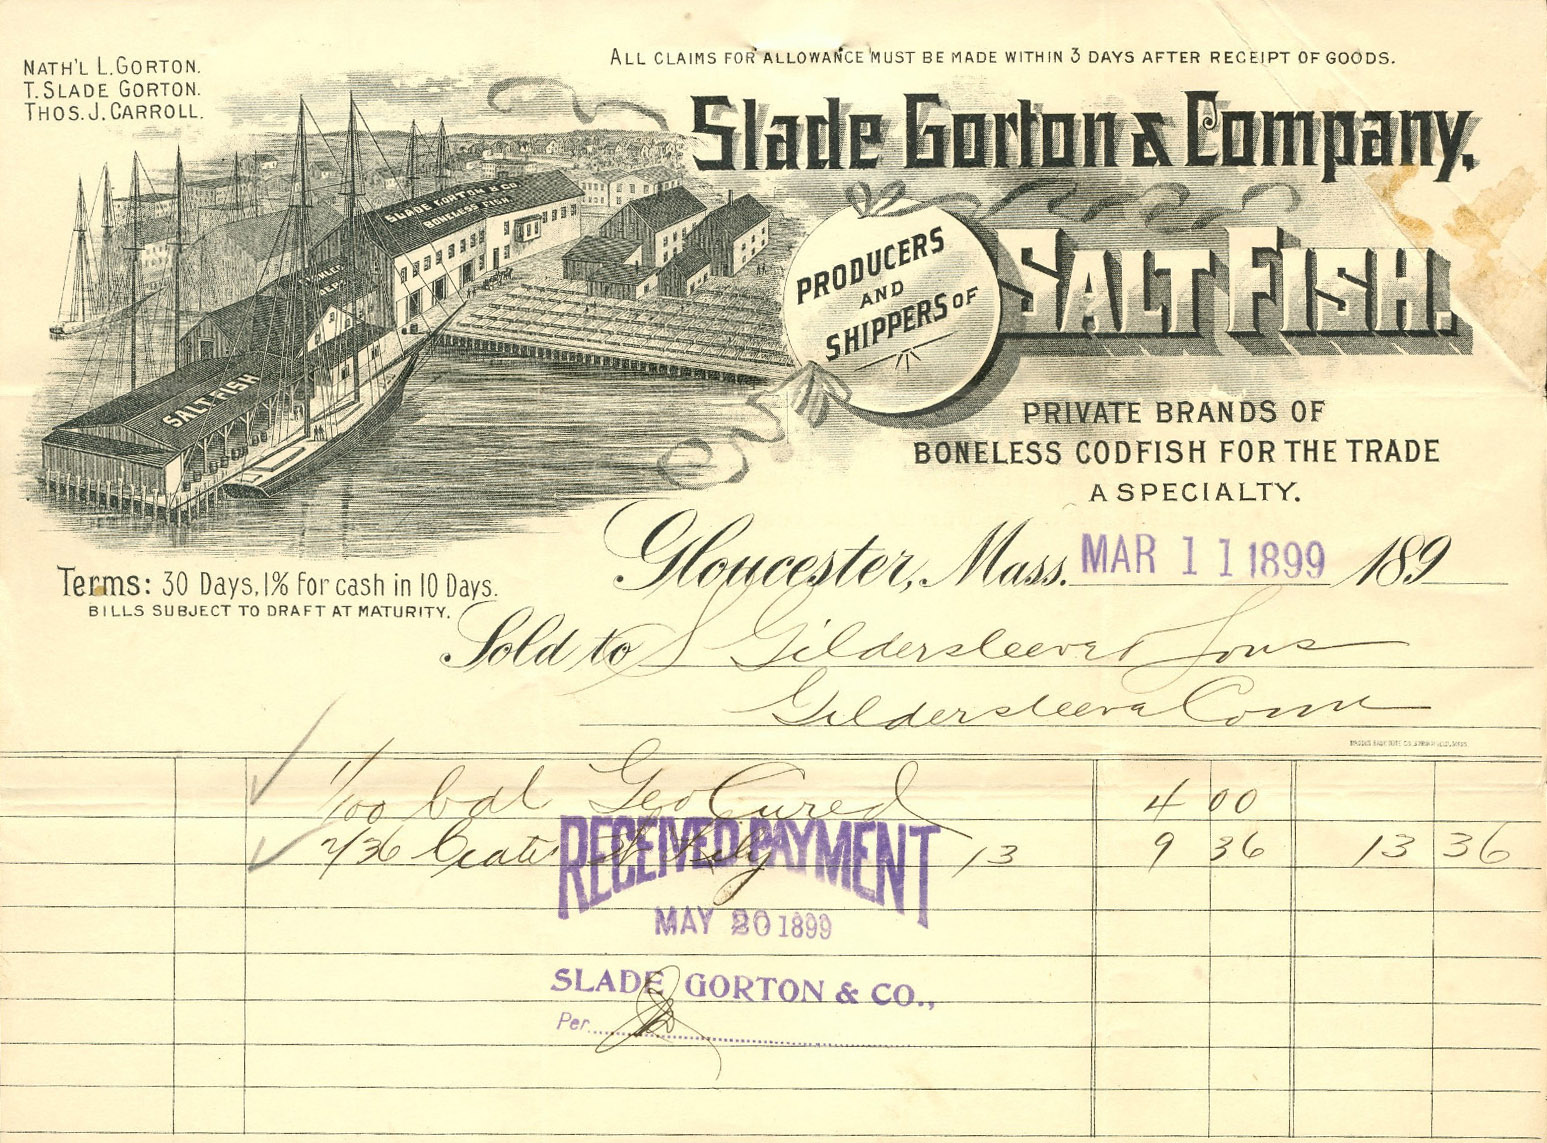 NATH'L L. GORTON.
T. SLADE GORTON.
THOS. J. CARROLL.
ALL CLAIMS FOR ALLOWANCE MUST BE MADE WITHIN 3 DAYS AFTER RECEIPT OF GOODS.
Slade Gorton & Company,
SLADE GORTON & CO.
BONELESS FISH
SALT FISH
PRODUCERS
AND
SHIPPERS OF
SALT FISH.
PRIVATE BRANDS OF
BONELESS CODFISH FOR THE TRADE
A SPECIALTY.
Gloucester, Mass. MAR 11 1899 189
Terms: 30 Days, 1% for cash in 10 Days.
BILLS SUBJECT TO DRAFT AT MATURITY.
Sold to S Gildersleeve & Sons
Gildersleeve Conn
1/100 bdl Geo Cured 4 00
2/36 Crates 13 9 36 13 36
RECEIVED PAYMENT
MAY 20 1899
SLADE GORTON & CO.,
Per